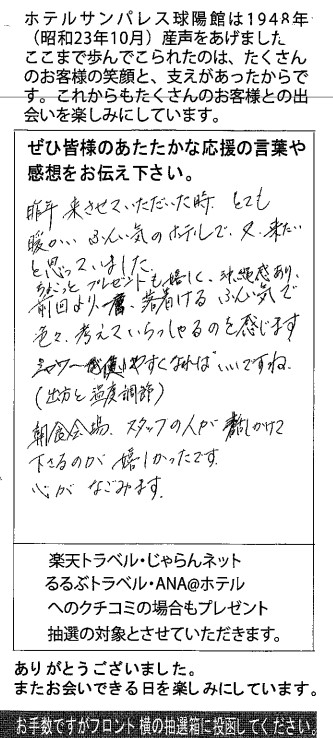 ホテルサンパレス球陽館は1948年
（昭和23年10月）産声をあげました
ここまで歩んでこられたのは、たくさん
のお客様の笑顔と、支えがあったからで
す。これからもたくさんのお客様との出
会いを楽しみにしています。
ぜひ皆様のあたたかな応援の言葉や
感想をお伝え下さい。
昨年 来させていただいた時、とても
暖かい ふんい気のホテルで、又、来たい
と思っていました。
ちょっとプレゼントも嬉しく、沖縄感あり、
前回より一層、落着ける ふんい気で
色々、考えていらっしゃるのを感じます
シャワーが使いやすくなれば いいですね。
(出方と温度調節)
朝食会場、スタッフの人が 話しかけて
下さるのが 嬉しかったです。
心が なごみます。
楽天トラベル・じゃらんネット
るるぶトラベル・ANA@ホテル
へのクチコミの場合もプレゼント
抽選の対象とさせていただきます。
ありがとうございました。
またお会いできる日を楽しみにしています。
お手数ですがフロント横の抽選箱に投函してください。